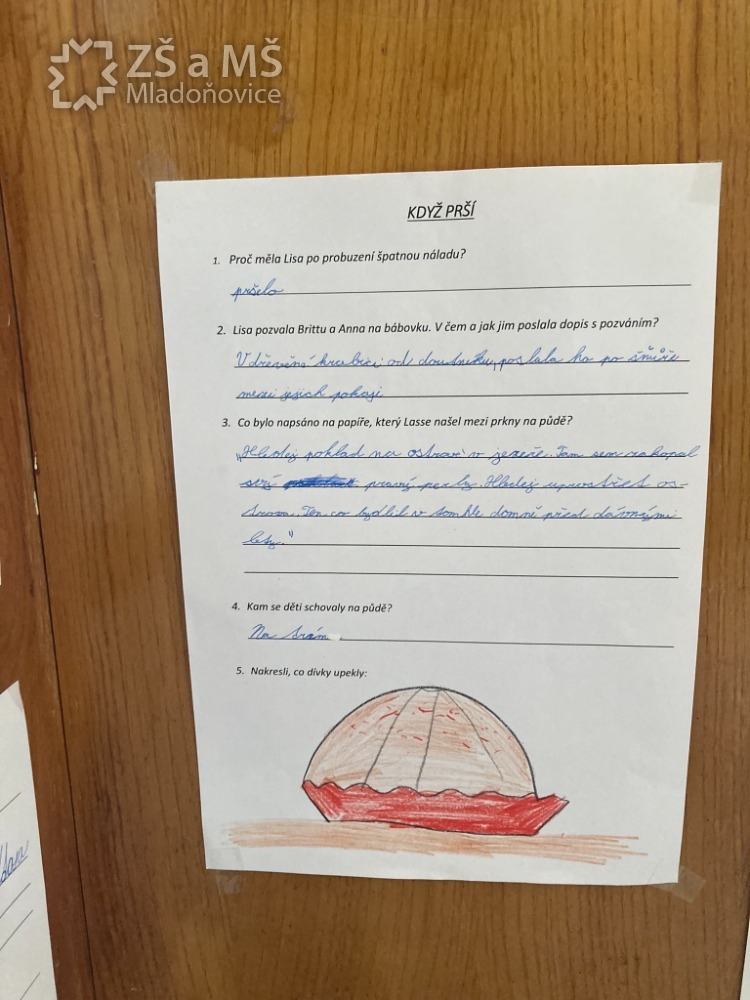 ZŠ a MŠ
Mladoňovice
KDYŽ PRŠÍ
1. Proč měla Lisa po probuzení špatnou náladu?
pršelo
2. Lisa pozvala Brittu a Anna na bábovku. V čem a jak jim poslala dopis s pozváním?
V dřevěné krabici od doutníku, poslala ho po šňůře
mezi jejich pokoji
3. Co bylo napsáno na papíře, který Lasse našel mezi prkny na půdě?
„Hledej poklad na ostrově v jezeře. Tam sem zakopal
svý pravý perly. Hledej uprostřed os-
trova. Ten co bydlil v tomhle domně před dávnými
lety."
4. Kam se děti schovaly na půdě?
Na trám
5. Nakresli, co dívky upekly: